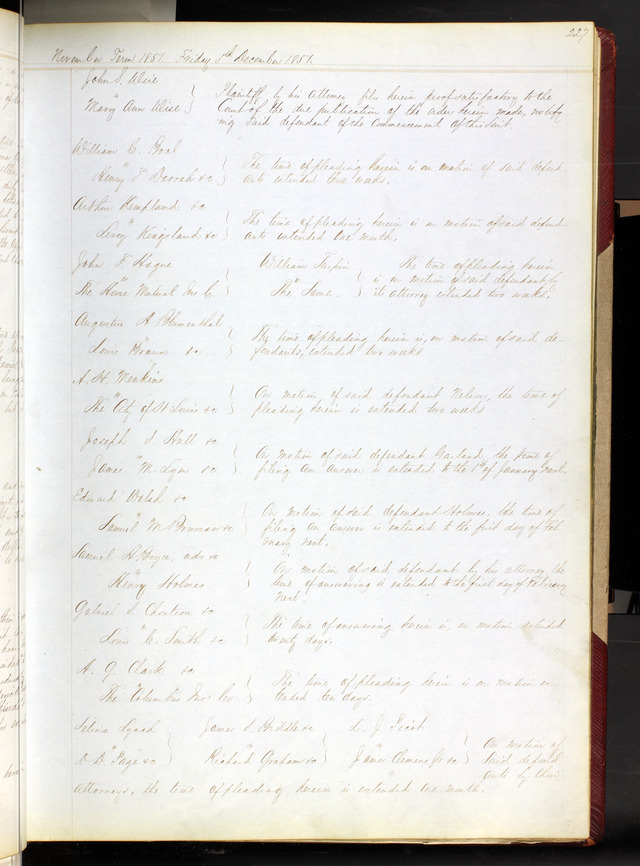 227
November Term 1857. Friday December 1857.
John S. Weise
vs
Mary Ann Weise } Plaintiff by his Attorney files herein proof satisfactory to the
Court of the due publication of the order herein made, notify
ing said defendant of the commencement of this suit.
William C.
vs
Henry T Darrah &c } The time of pleading herein is on motion of said defend
ants extended three weeks.
Arthur Hempland &c
vs
Levey Kingsland &c } The time of pleading herein is on motion of said defend
ants extended One month.
John F. Hague
vs
The Home Mutual Ins C. }
William Turpin
vs
The Same. } The time of pleading herein
is on motion of said defendant by
its attorney extended two weeks.
Augustus A Blumenthal
vs
Louis Braun &c } The time of pleading herein is, on motion of said de-
fendants, extended two weeks
A. H. Menkins
vs
The City of St Louis &c } On motion, of said defendant Nelson, the time of
pleading herein is extended two weeks
Joseph S. Hull &c
vs
James M. Lyon &c } On motion of said defendant Garland, the time of
filing an answer is extended to the 1st of January next.
Edward Walsh &c
vs
Samuel M Bowman &c } On motion of said defendant Holmes, the time of
filing an answer is extended to the first day of Feb
ruary next.
Samuel H. adm &c
vs
Henry Holmes } On motion of said defendant by his attorney the
time of answering is extended to the first day of February
next.
Gabriel S Chouteau &c
vs
Louis C. Smith &c } The time of answering herein is, on motion extended
twenty days.
A. G. Clark &c
vs
The Columbus Ins. Co. } The time of pleading herein is on motion ex-
tended ten days.
Selina Lynch
vs
D. D. Page &c }
James S. Biddle &c
vs
Richard Graham &c }
L. J.
vs
James Clemens Jr &c } On motion of
said defend
ants by their
attorneys, the time of pleading herein is extended One month.